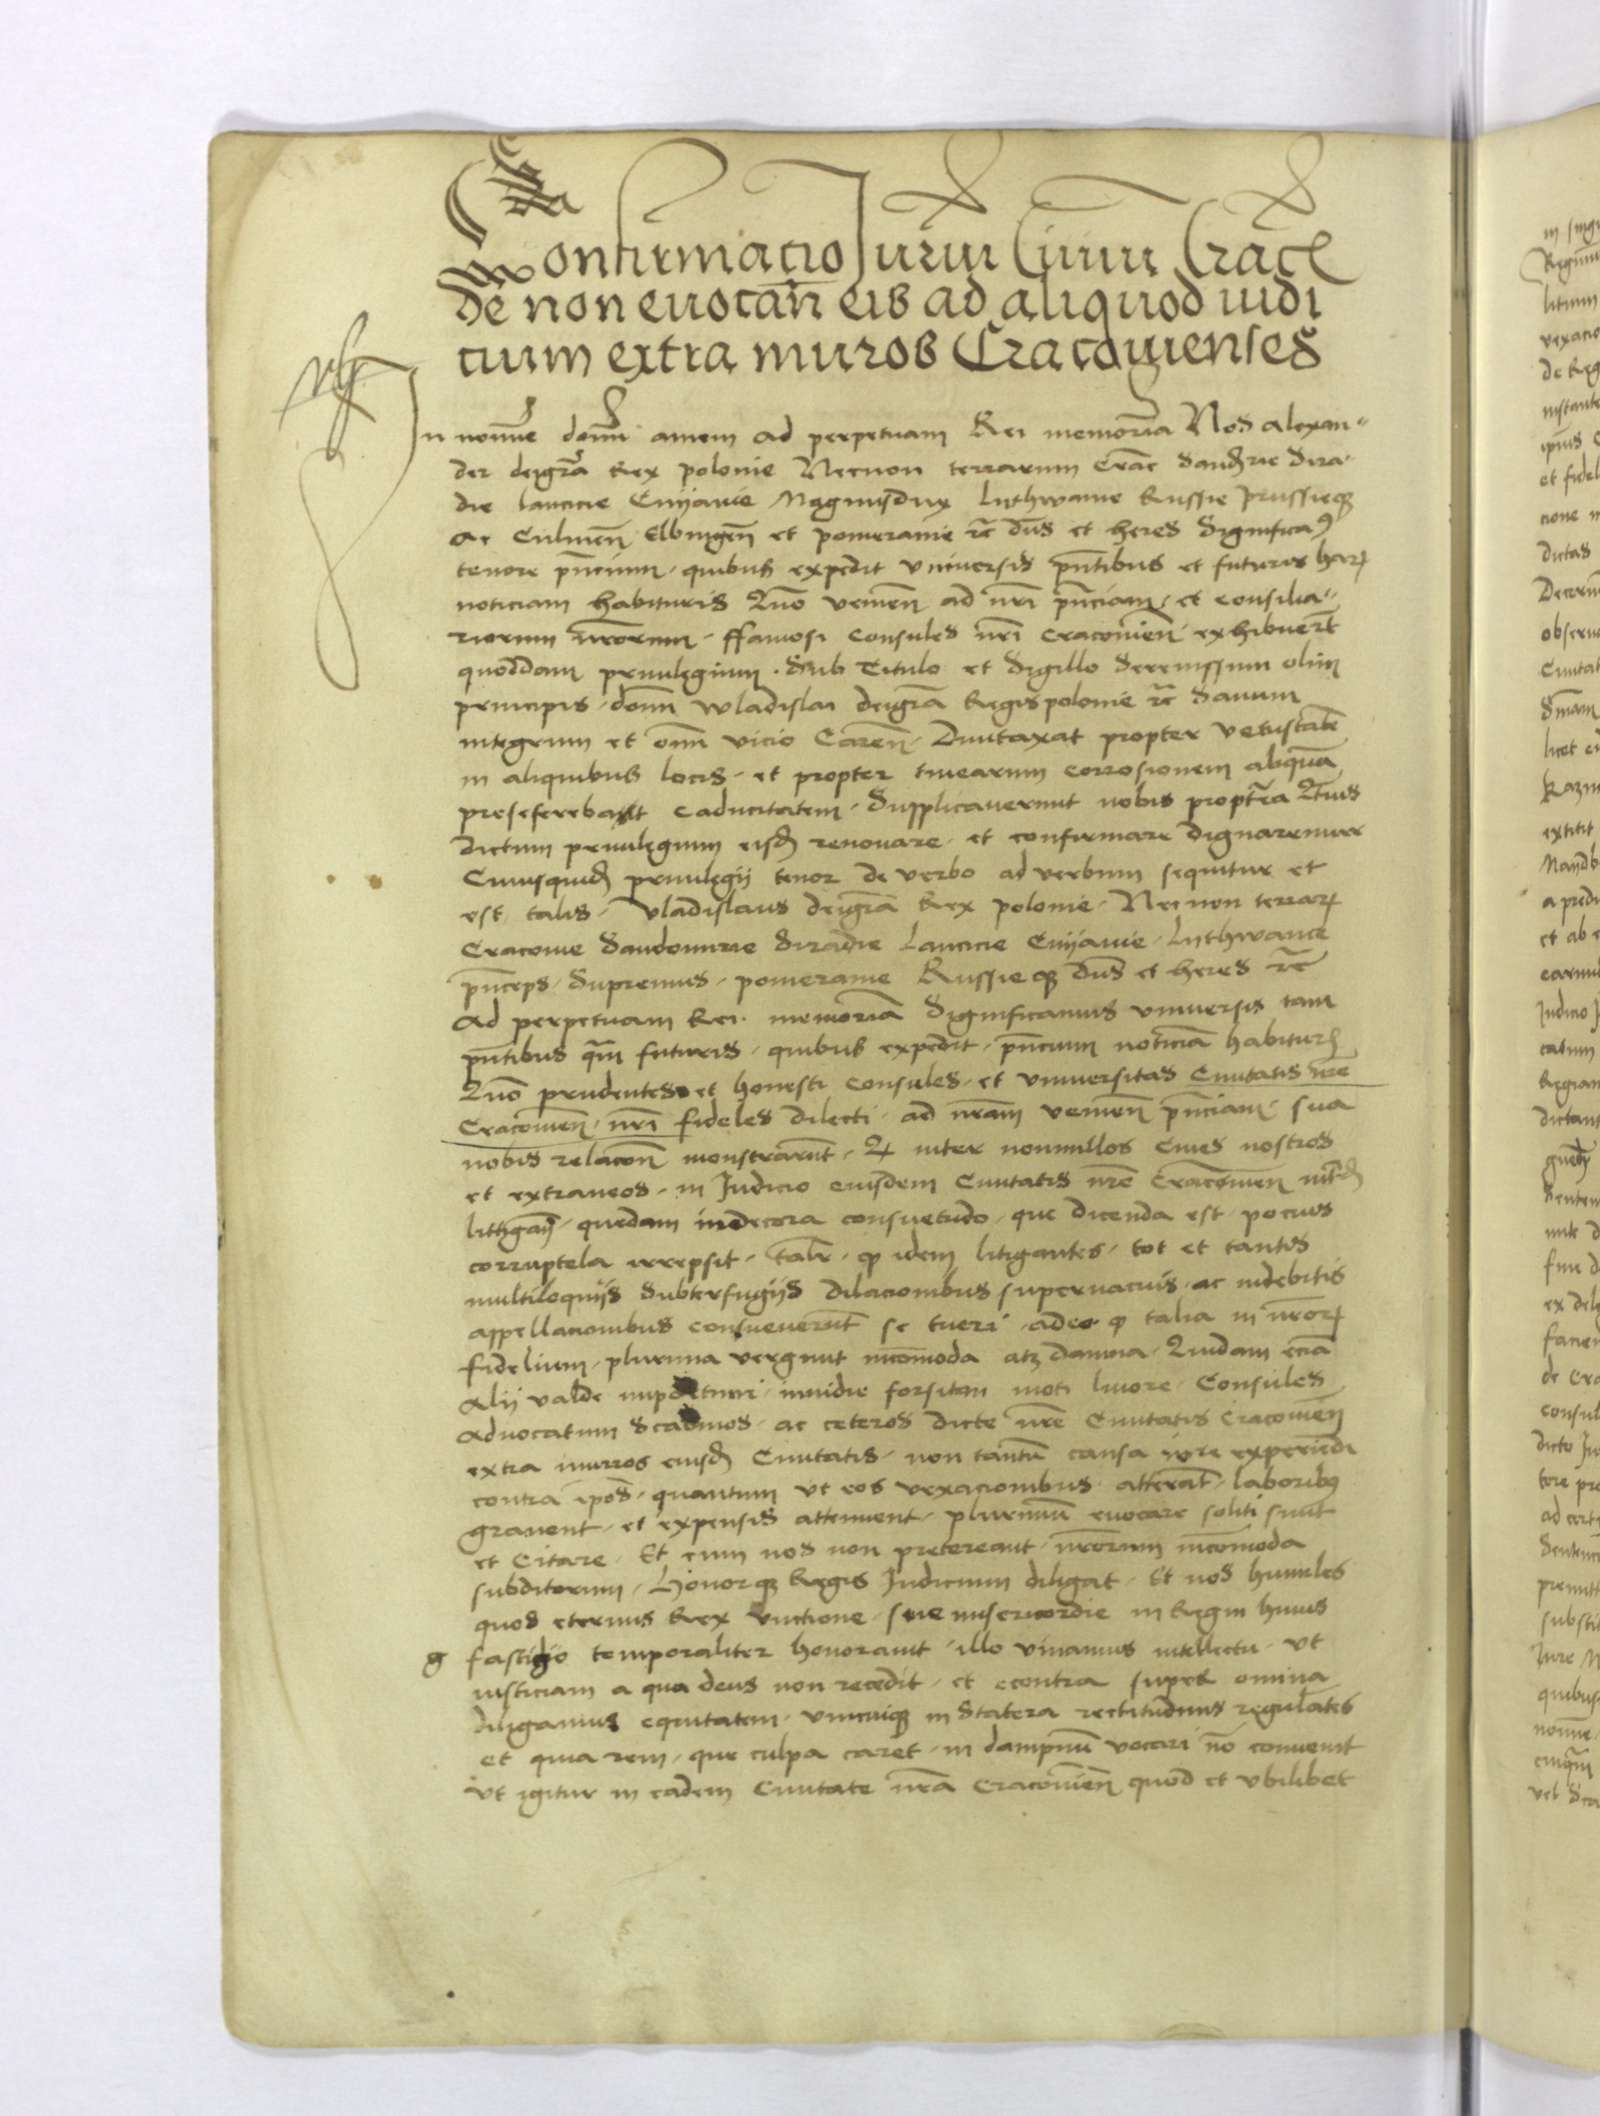 Confirmacio Juriu Ciuiu Crac
de non euocan̄ eis ad aliquod iudi
cium extra muros Cracouienses
In nomine domī amem ad perpetuam Rei memoriā Nos alexan=
der deigrā Rex polonie Necnon terrarum Crac̄ Sandꝫrie Sira-
die lancicie Cuijauie Magnusdux lythwanie Russie prussieqꝫ
ac Culmen̄ Elbingen̄ et pomeranie rc̄ dn̄s et heres Significaꝰ
tenore pn̄cium quibus expedit vniuersis pn̄tibus et futuris harꝝ
noticiam habituris Quō venien̄ ad nr̄i pn̄ciam et consilia=
riorum nr̄orum ffamosi consules nr̄i cracouien̄ exhibuer̄t
quoddam priuilegium Sub Titulo et Sigillo Serenissimi olim
principis domī wladislai deigrā Regis polonie rc̄ Sanum
integrum et om̄i vicio Caren̄ Duntaxat propter vetustatē
in aliquibus locis et propter tinearum corrosionem aliquā
preseferebat caducitatem Supplicauerunt nobis proptr̄ea Qtus
dictum priuilegium eisdꝫ renouare et confirmare dignaremur
Cuiusquidꝫ priuilegij tenor de verbo ad verbum sequitur et
est talis Vladislaus deigrā Rex polonie Necnon terrarꝝ
Cracouie Sandomirie Siradie lancicie Cuijauie lythwanie
pn̄ceps Supremus pomeranie Russieqꝫ dn̄s et heres rc̄
Ad perpetuam Rei memoriā Significamus vniuersis tam
pn̄tibus qm̄ futuris quibus expedit pn̄cium noticiā habituris
Quō prudentes et honesti consules et vniuersitas Ciuitatis nr̄e
Cracouien̄ nr̄i fideles dilecti ad nr̄am venien̄ pn̄ciam sua
nobis relacon̄ monstrarūt Qꝫ inter nonnullos Ciues nostros
et extraneos in Judicio eiusdem Ciuitatis nr̄e Cracouien̄
littigan̄ quedam indecora consuetudo que dicenda est pocius
corruptela irrepsit talr̄ ꝙ idem litigantes tot et tantis
multiloquijs Subterfugijs dilacionibus superuacuis ac indebitis
appellacionibus consueuerūt se tueri adeo ꝙ talia in nr̄orꝝ
fidelium plurima vergunt incōmoda atꝫ damna Quidam eciā
Alij valde inuidie forsitan moti liuore Consules
Aduocatum Scabinos ac ceteros dicte nr̄e Ciuitatis Cracouien̄
extra murros eiusdꝫ Ciuitatis non tantū causa iure experiēdi
contra ip̄os quantum vt eos vexacionibus atterāt laboribꝰ
grauent et expensis attenuent plurimū euocare soliti sunt
et Citare Et cum nos non pretereant nr̄orum incōmoda
subditorum Honorqꝫ Regis Judicium diligat Et nos humiles
quos eternus Rex vnctione sue misericordie in Regni huius
g fastigio temporaliter honorauit illo viuamus intellectu vt
iusticiam a qua deus non recedit et econtra super omnia
diligamus equitatem vnicuiqꝫ in Statera rectitudinis regulātes
et quia rem que culpa caret in dampnū vocari nō conuenit
Vt igitur in eadem Ciuitate nr̄a Cracouien̄ quod et vbilibet